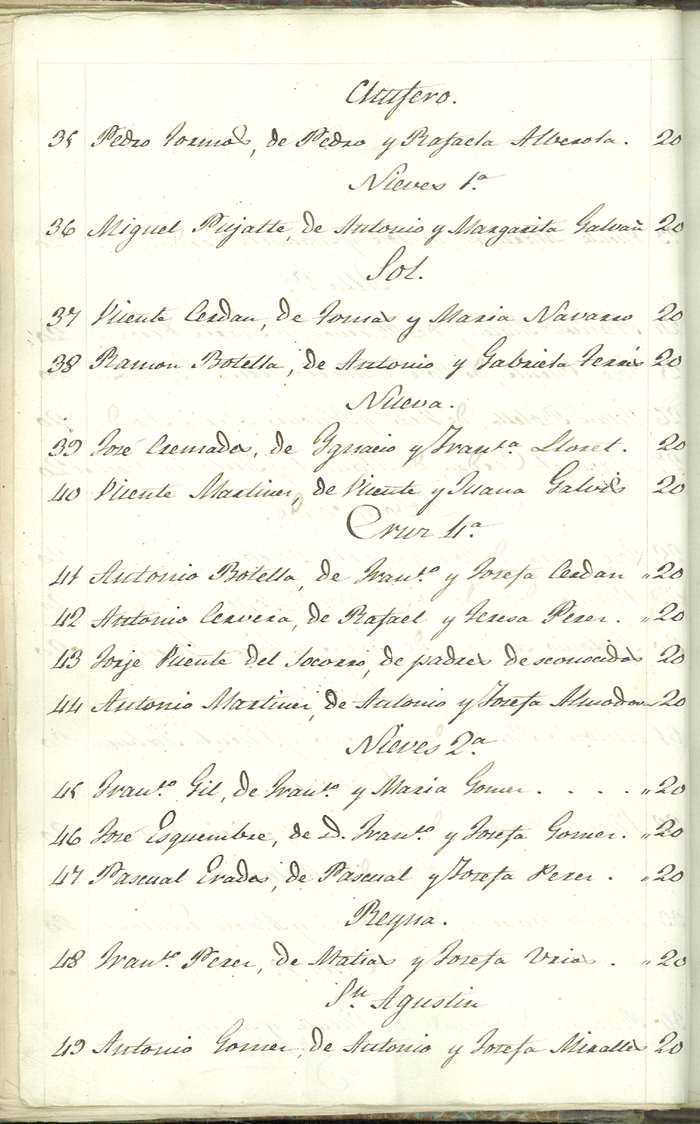 Chufero.
35 Pedro Tormos, de Pedro y Rafaela Alberola. 20
Nieves 1.ª
36 Miguel Pujalte, de Antonio y Margarita Galvañ 20
Sol.
37 Vicente Cerdan, de Tomas y Maria Navarro 20
38 Ramon Botella, de Antonio y Gabriela Ferris 20
Nueva.
39 José Cremades, de Ygnacio y Fran.ca Lloret. 20
40 Vicente Martinez, de Vicente y Juana Galvis 20
Cruz 4.ª
41 Antonio Botella, de Fran.co y Josefa Cerdan „20
42 Antonio Cervera, de Rafael y Teresa Perez. „20
43 Jorje Vicente del Socorro, de padres desconocidos 20
44 Antonio Martinez, de Antonio y Josefa Almodovar 20
Nieves 2.ª
45 Fran.co Gil, de Fran.co y Maria Gomez . . . . „20
46 José Esquembre, de D. Fran.co y Josefa Gomez. „20
47 Pascual Erades, de Pascual y Josefa Perez. „20
Reyna.
48 Fran.co Perez, de Matias y Josefa Urios. „20
Sn. Agustin
49 Antonio Gomez, de Antonio y Josefa Miralles 20